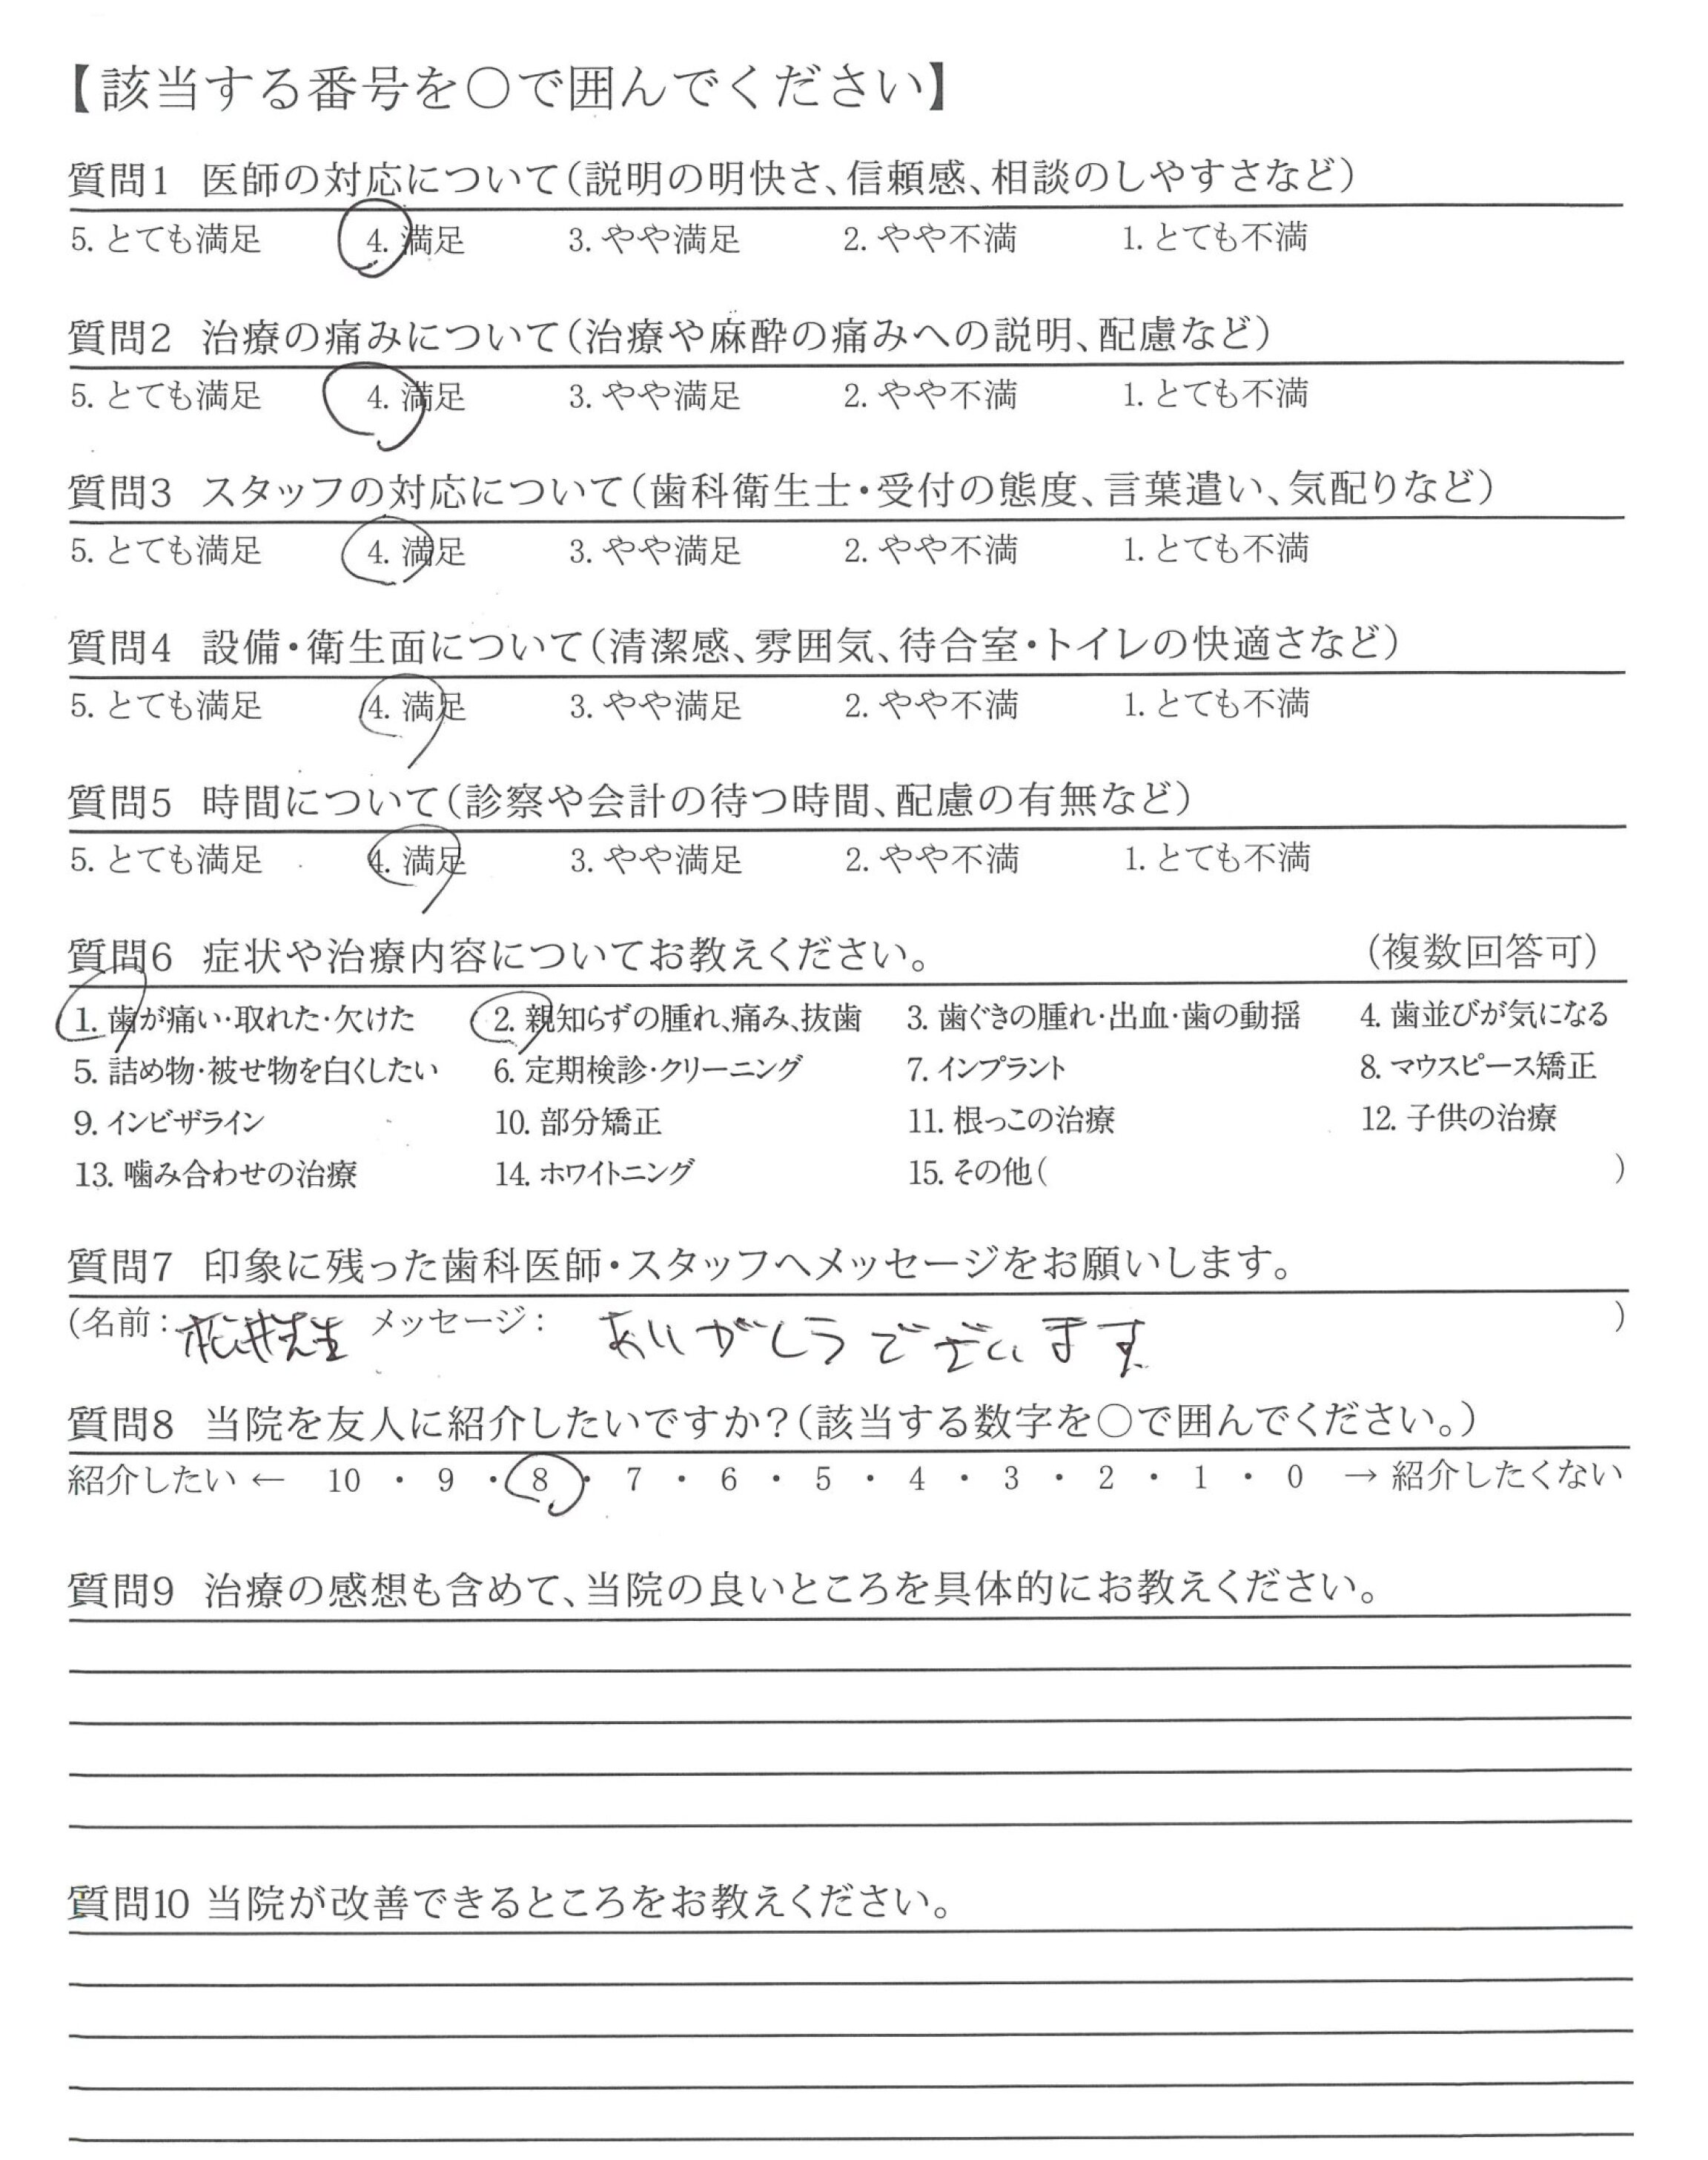 【該当する番号を〇で囲んでください】
質問1 医師の対応について(説明の明快さ、信頼感、相談のしやすさなど)
5. とても満足 4. 満足 3. やや満足 2. やや不満 1. とても不満
質問2 治療の痛みについて(治療や麻酔の痛みへの説明、配慮など)
5. とても満足 4. 満足 3. やや満足 2. やや不満 1. とても不満
質問3 スタッフの対応について(歯科衛生士・受付の態度、言葉遣い、気配りなど)
5. とても満足 4. 満足 3. やや満足 2. やや不満 1. とても不満
質問4 設備・衛生面について(清潔感、雰囲気、待合室・トイレの快適さなど)
5. とても満足 4. 満足 3. やや満足 2. やや不満 1. とても不満
質問5 時間について(診察や会計の待つ時間、配慮の有無など)
5. とても満足 4. 満足 3. やや満足 2. やや不満 1. とても不満
質問6 症状や治療内容についてお教えください。 (複数回答可)
1. 歯が痛い・取れた・欠けた 2. 親知らずの腫れ、痛み、抜歯 3. 歯ぐきの腫れ・出血・歯の動揺 4. 歯並びが気になる
5. 詰め物・被せ物を白くしたい 6. 定期検診・クリーニング 7. インプラント 8. マウスピース矯正
9. インビザライン 10. 部分矯正 11. 根っこの治療 12. 子供の治療
13. 噛み合わせの治療 14. ホワイトニング 15. その他( )
質問7 印象に残った歯科医師・スタッフへメッセージをお願いします。
(名前: 松井先生 メッセージ: ありがとうございます )
質問8 当院を友人に紹介したいですか?(該当する数字を〇で囲んでください。)
紹介したい ← 10 ・ 9 ・ 8 ・ 7 ・ 6 ・ 5 ・ 4 ・ 3 ・ 2 ・ 1 ・ 0 → 紹介したくない
質問9 治療の感想も含めて、当院の良いところを具体的にお教えください。
質問10 当院が改善できるところをお教えください。